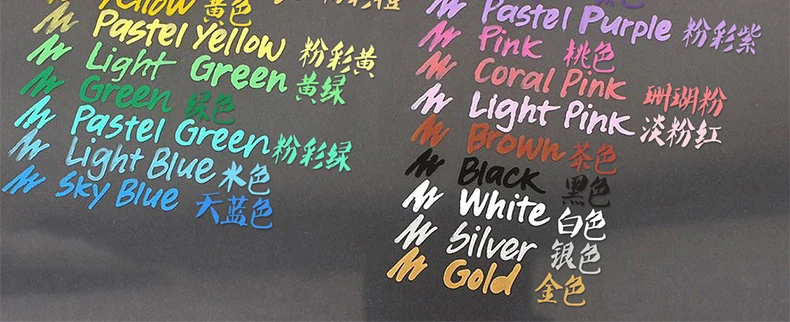 Yellow 黄色
Pastel Yellow 粉彩黄
Light Green 黄绿
Green 绿色
Pastel Green 粉彩绿
Light Blue 水色
Sky Blue 天蓝色
Pastel Purple 粉彩紫
Pink 桃色
Coral Pink 珊瑚粉
Light Pink 淡粉红
Brown 茶色
Black 黑色
White 白色
Silver 银色
Gold 金色